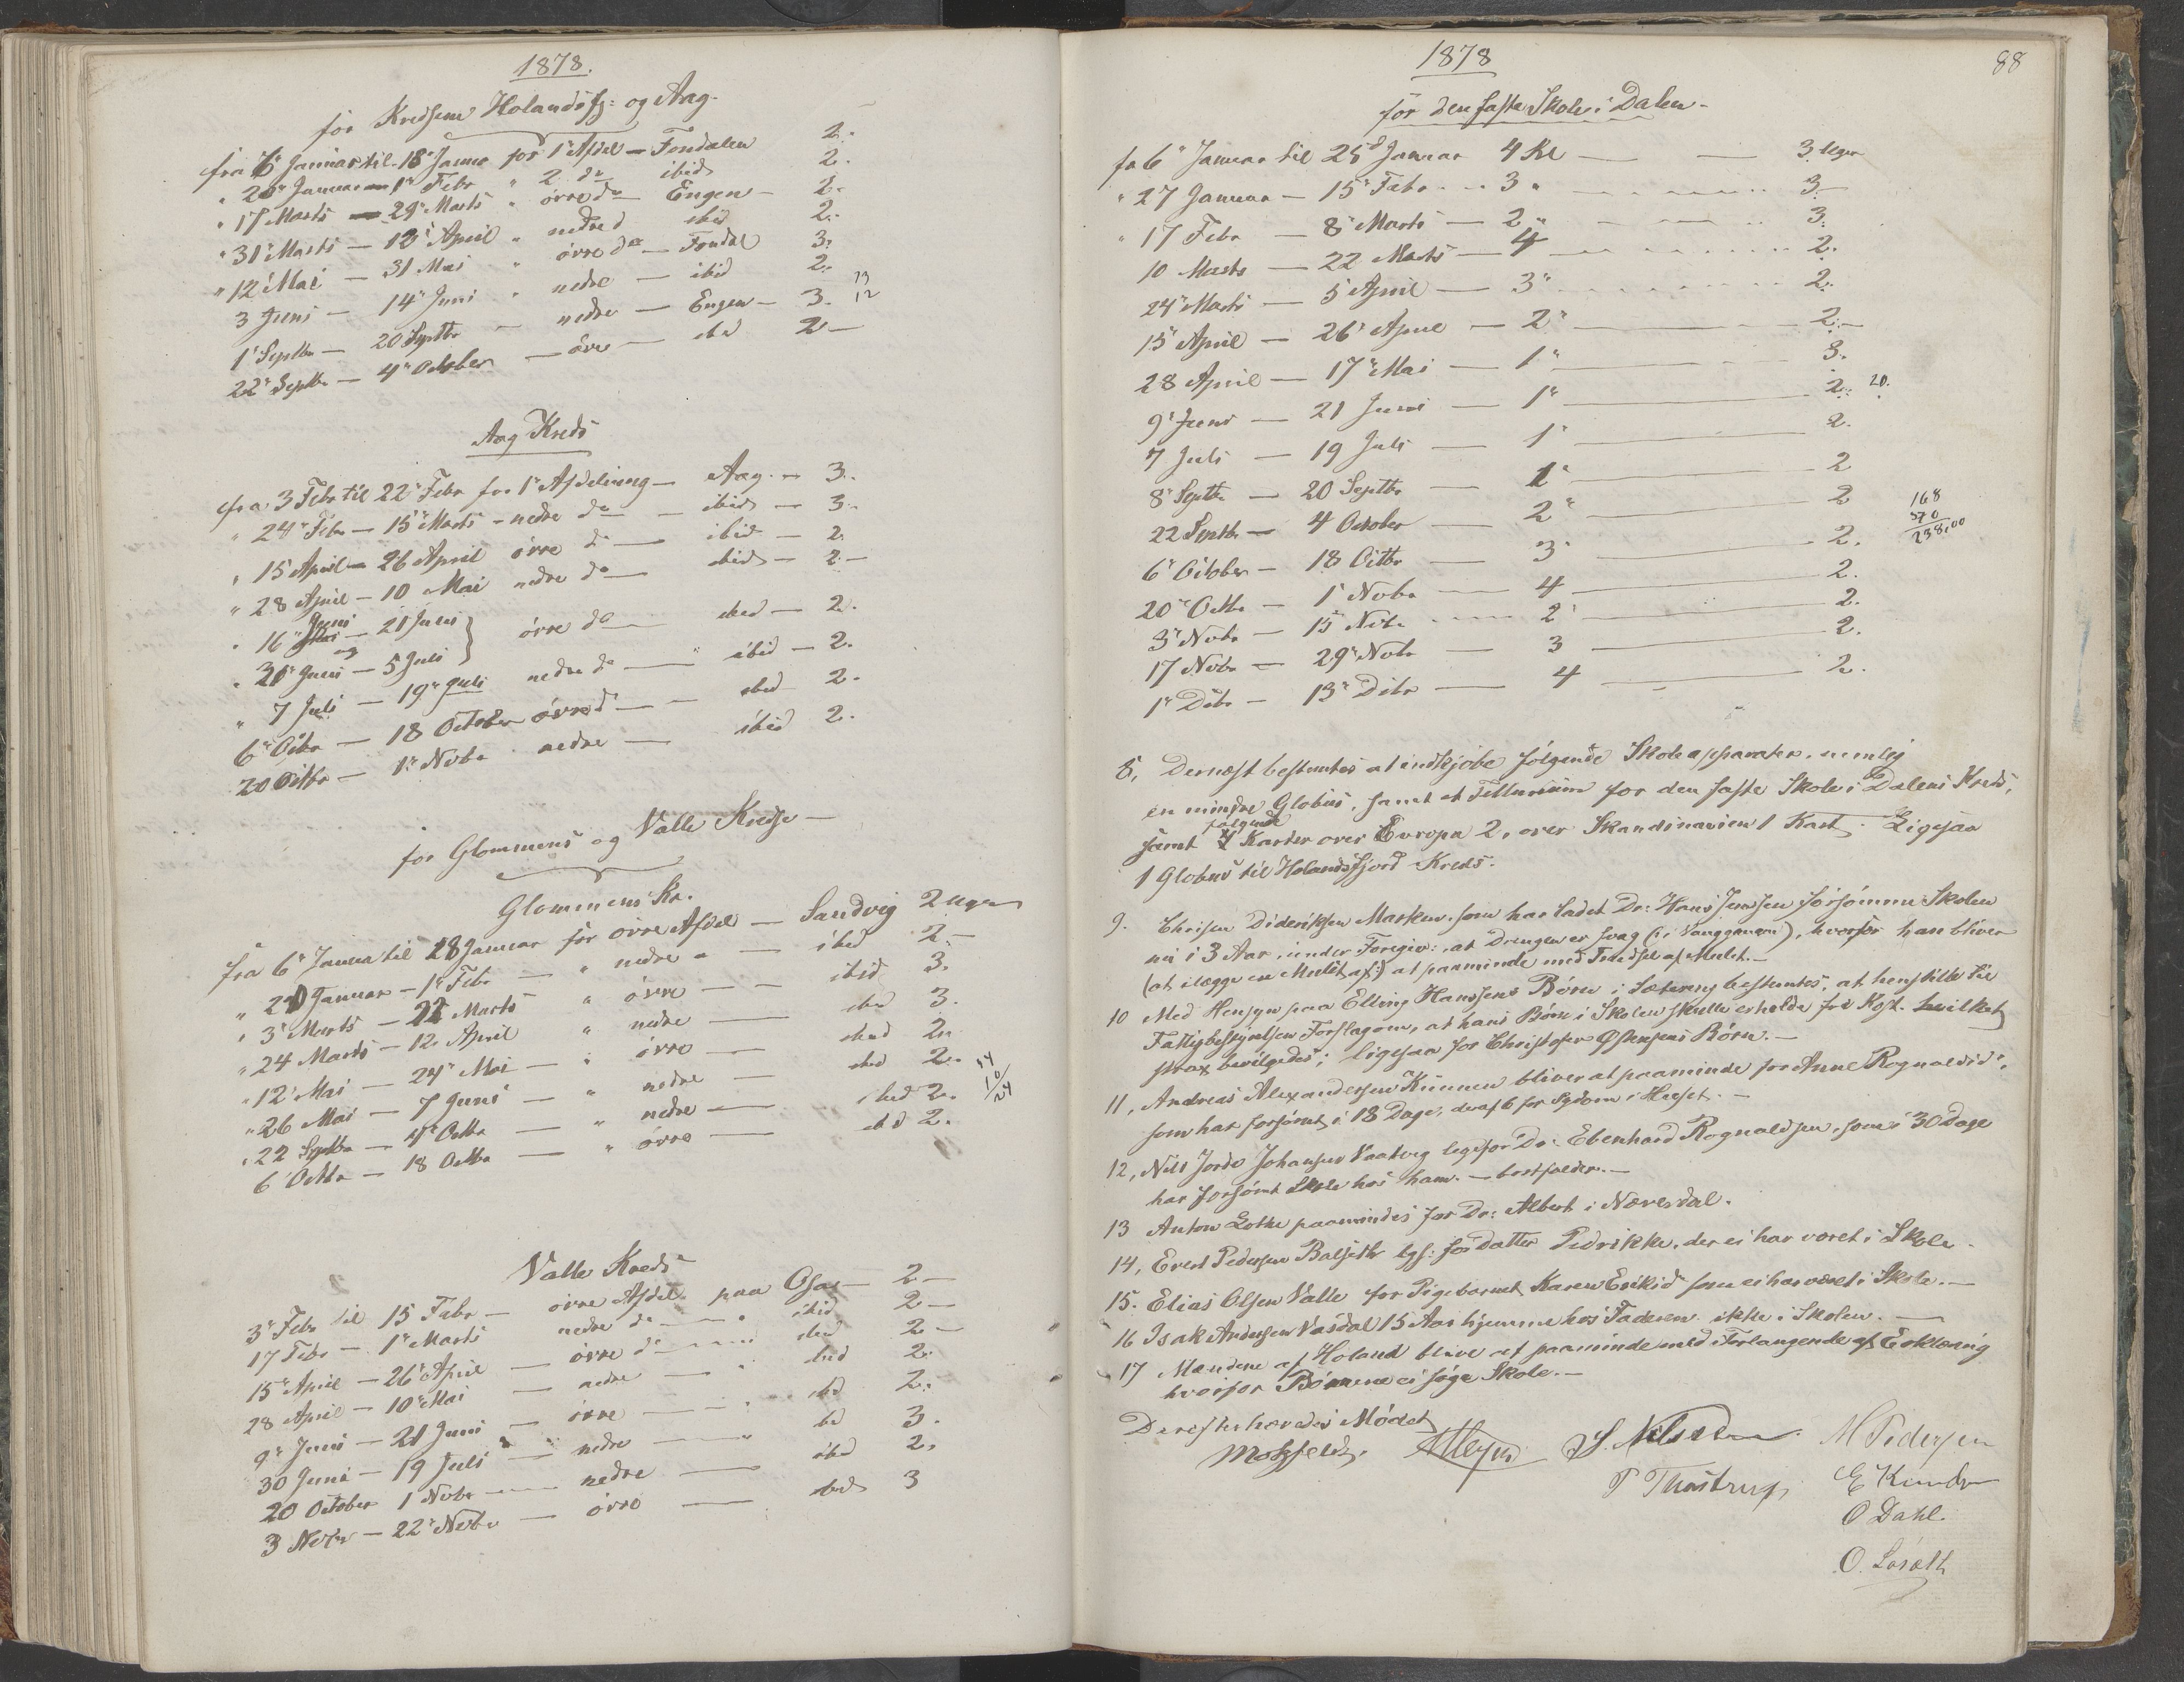 1878.
for Kredsene Holandsfj: og Aag.
fra 6te Januar til 18de Januar for 1ste Afdel — Fondalen 2.
" 20de Januar — 1ste Febr " 2 do ibid 2.
" 17 Marts — 29de Marts " övre do Engen — 2.
" 31te Marts — 12te April " nedre d ibid 2.
" 12te Mai — 31 Mai " övre do — Fondal 3.
3 Juni — 14de Juni " nedre — ibid 2.
1ste Septbr — 20 Septbr — nedre — Engen — 3. 13
12
22de Septbr — 4de October — övre — ibid 2 —
Aag Kreds
fra 3 Febr til 22de Febr for 1ste Afdelning — Aag. — 3.
" 24de Febr — 15de Marts — nedre do — ibid — 3.
" 15 April — 26 April övre do — ibid — 2.
" 28 April — 10 Mai nedre do — ibid — 2 —
Juni
" 16de Mai — 21 Juni } övre do — ibid — 2.
og
" 30te Juni — 5 Juli
" 7 Juli — 19de Juli nedre do — ibid — 2.
6te Octbr — 18 October övre d — ibid 2.
20 Octbr — 1ste Novbr nedre — ibid 2.
for Glommens og Valle Kredse —
Glommens Kr.
fra 6te Januar til 18 Januar for övre Afdel — Sandvig 2 Uger
" 20 Januar — 1ste Febr — " nedre " — ibid 2 —
" 3de Marts — 22 Marts " övre — — ibid 3.
" 24 Marts — 12te April " nedre — ibid 3.
" 12te Mai — 24de Mai — " övre — ibid 2.
" 26 Mai — 7 Juni — " nedre — ibid 2. 14
" 22 Septbr — 4de Octbr — " nedre — ibid 2. 10
24
6 Octbr — 18 Octbr — " övre — ibid 2.
Valle Kreds
3de Febr til 15 Febr — övre Afdel. paa Osar — 2 —
17 Febr — 1ste Marts nedre do — " ibid 2 —
15de April — 26de April — övre do — ibid 2 —
28 April — 10de Mai — nedre — " ibid 2.
9de Juni — 21 Juni — övre — " ibid 2.
30 Juni — 19 Juli — nedre — " ibid 3.
20 October 1 Novbr — nedre — ibid 2.
3 Novbr — 22de Novbr — övre — ibid 3
1878
88
for den faste Skole i Dalen —
fra 6te Januar til 25de Januar 4 Kl — — 3 Uger
" 27 Januar — 15de Febr — 3 " — 3 —
" 17 Febr — 8de Marts — 2 " — 3.
10 Marts — 22 Marts — 4 — 2.
24de Marts — 5 April — 3 " — 2.
15de April — 26de April — 2 " — 2. —
28 April — 17de Mai — 1 " — 3.
9de Juni — 21 Juni — 1 " — 2. 20.
7 Juli — 19 Juli — 1 " — 2.
8de Septbr — 20 Septbr — 1 " — 2
22 Septbr — 4 October — 2 " — 2 168
6te October — 18 Octbr — 3 " — 2. 570
238,00
20de Octbr — 1ste Novbr — 4 — 2.
3de Novbr — 15 Novbr — 2 " — 2.
17 Novbr — 29de Novbr — 3 — 2.
1ste Decbr — 13de Decbr — 4 — 2.
8, Dernæst bestemtes at indkjöbe fölgende Skoleapparater, nemlig
en mindre Globus, samt et Tellurium for den faste Skole i Dalens Kreds,
fölgende
samt Karter over Europa 2, over Skandinavien 1 Kart. Ligesaa
1 Globus til Holandsfjord Kreds.
9. Chrisen Dideriksen Marken, som har ladet Dr: Hans Jensen forsömme Skolen
nu i 3 Aar, under Foregiv: at Drengen er svag , hvorfor han bliver
(at ilægge en Mulct af) at paaminde med Trudsel af Mulct. —
10 Med Hensyn paa Elling Hanssens Börn i Sætereng bestemtes, at henstille til
Fattigbestyrelsen Forslag om, at hans Börn i Skolen skulle erholde fri Kost, hvilket
strax bevilgedes; ligesaa for Christofer Östensens Börn. —
11, Andreas Alexandersen Kunnen bliver at paaminde for Anne Rognaldsd:,
som har forsömt i 18 Dage, deraf 6 for Sygdom i Huset. —
12, Nils Jordo Johansen Vaatvig legesfor Dr: Ebenhard Rognaldsen, som i 30 Dage
har forsömt Skole hos ham. — bortfalder. —
13 Anton Lothe paamindes for Dr: Albert i Næverdal.
14, Evert Pedersen Balseth lgs: for Datter Pedrikke, der ei har været i Skole —
15. Elias Olsen Valle for Pigebarnet Karen Eriksd som ei har været i Skole. —
16 Isak Andersen Vasdal 15 Aar hjemme hos Faderen ikke i Skolen. —
17 Mændene af Holand blive at paaminde med Forlangende af Erklæring
hvorfor Börnene ei söge Skole. —
Derefter hævedes Mödet
Mosfeldt. AMeyer S. Nilssen. M Pedersen
P Thastrup, E Kunde
O Dahl.
O. Loräth